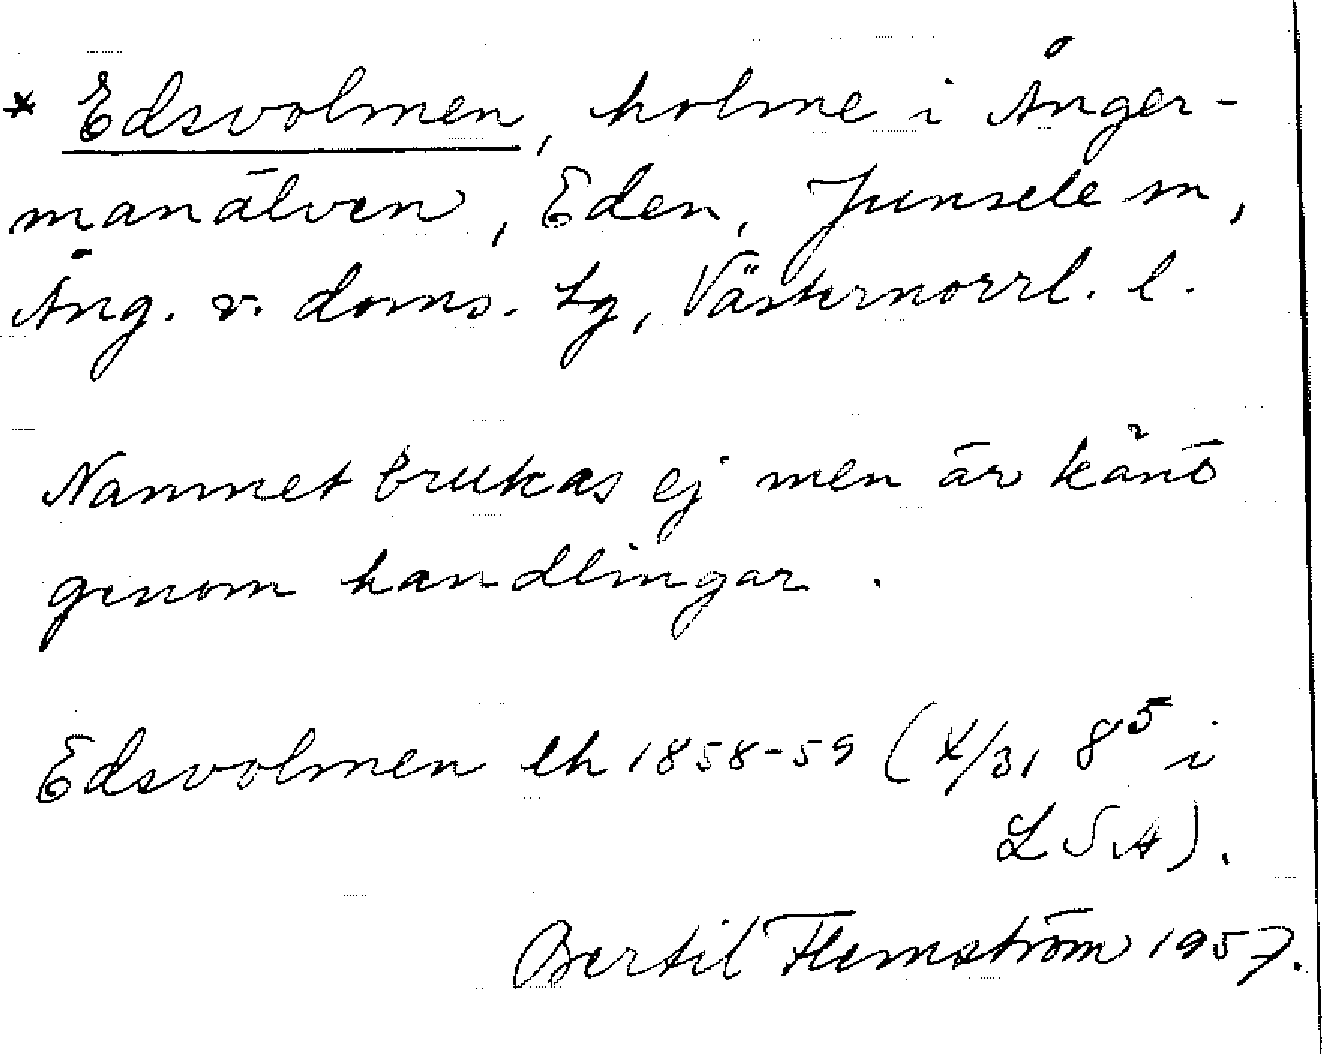 * Edsvolmen, holme i Ånger-
manälven, Eden, Junsele sn,
Ång. v. doms. tg, Västernorrl. l.
Namnet brukas ej men är känt
genom handlingar.
Edsvolmen lh 1858-59 (X/31 8⁵ i
LSA).
Bertil Flemström 1957.